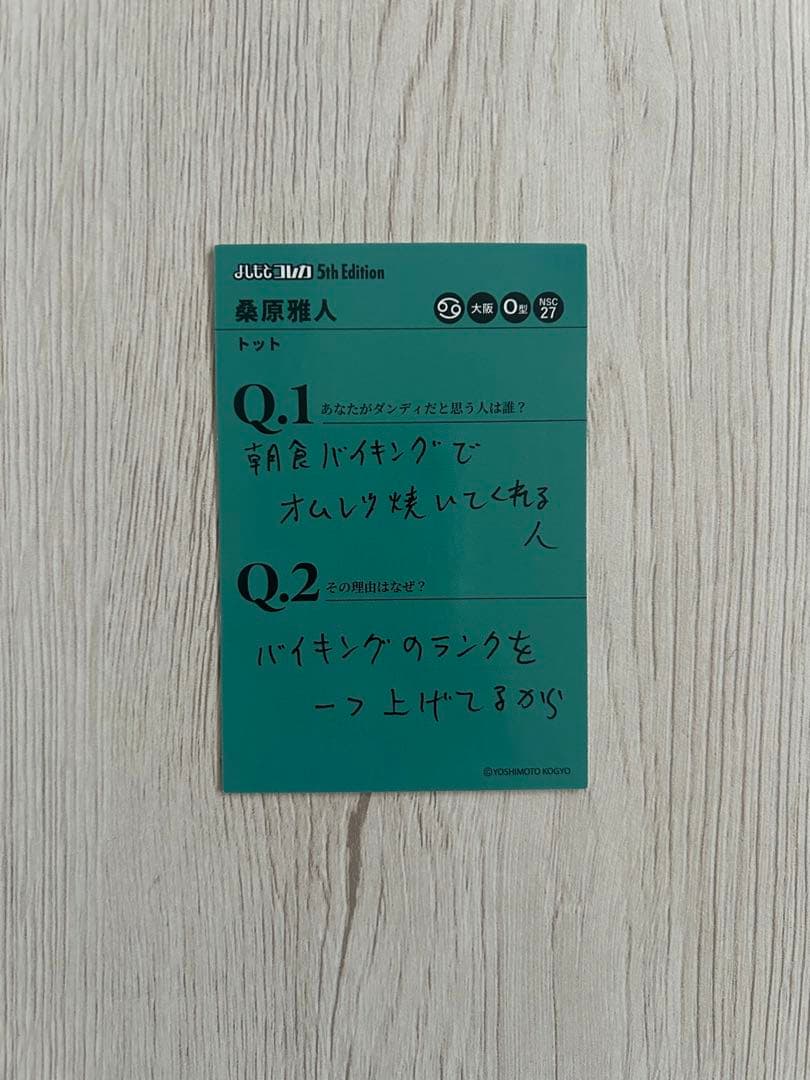 よしもとコレカ 5th Edition
桑原雅人 ♋ 大阪 O型 NSC 27
トット
Q.1 あなたがダンディだと思う人は誰?
朝食バイキングで
オムレツ焼いてくれる
人
Q.2 その理由はなぜ?
バイキングのランクを
一つ上げてるから
©YOSHIMOTO KOGYO